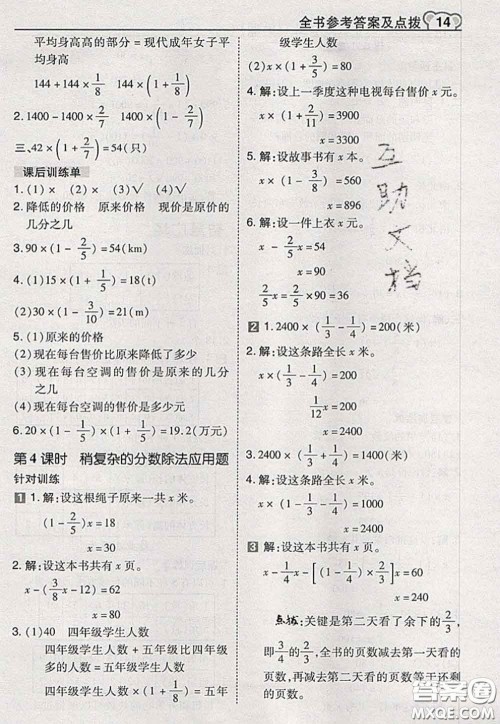 全书参考答案及点拨 14
平均身高高的部分 = 现代成年女子平
均身高
144 + 144 × 1/8  144 × (1 + 1/8)
2. 1400 - 1400 × 2/7  1400 × (1 - 2/7)
三、42 × (1 + 2/7) = 54(只)
课后训练单
1. (1)× (2)√ (3)√
2. 降低的价格 原来的价格 现价是原价的
几分之几
3. 90 × (1 - 2/5) = 54(km)
4. (1)15 × (1 + 1/5) = 18(t)
(2)30 × (1 - 3/10) = 21(m)
5. (1)原来的价格
(2)现在每台售价比原来降低了多少
(3)现在每台空调的售价是原来的几分
之几
(4)现在每台空调的售价是多少元
6. 20 × (1 - 1/5) × (1 + 1/5) = 19.2(万元)
第 4 课时 稍复杂的分数除法应用题
针对训练
1 1. 解:设这根绳子原来一共 x 米。
(1 - 2/5)x = 18
x = 30
2. 解:设这本书共有 x 页。
x - (3/8 x - 12) = 62
x = 80
3. (1)40 四年级学生人数
四年级学生人数 + 五年级比四年级
多的人数 = 五年级学生人数
四年级学生人数 × (1 + 3/5) = 五年
级学生人数
(2)x × (1 + 3/5) = 80
4. 解:设上一季度这种电视每台售价 x 元。
x × (1 - 2/11) = 3900
x = 3300
5. 解:设故事书有 x 本。
x × (1 - 3/8) = 560
x = 896
6. 解:设一件上衣 x 元。
x - 2/5 x = 54
x = 90
2/5 x = 2/5 × 90 = 36
2 1. 2400 × (1/3 - 1/4) = 200(米)
2. 解:设这条路全长 x 米。
x × (1/3 - 1/4) = 200
x = 2400
3. 2400 × (1/3 + 1/4) = 1400(米)
4. 解:设这条路全长 x 米。
x × (1/3 + 1/4) = 1400
x = 2400
3 解:设这本书共有 x 页。
x - 1/4 x - [(1 - 1/4)x × 2/3] = 60
x = 240
点拨: 关键是第二天看了余下的 2/3,
即 3/4 的 2/3, 全书的页数减去第一天看的
页数, 再减去第二天看的页数等于还剩
的页数。
互助文档
答案圈
MXQE.COM